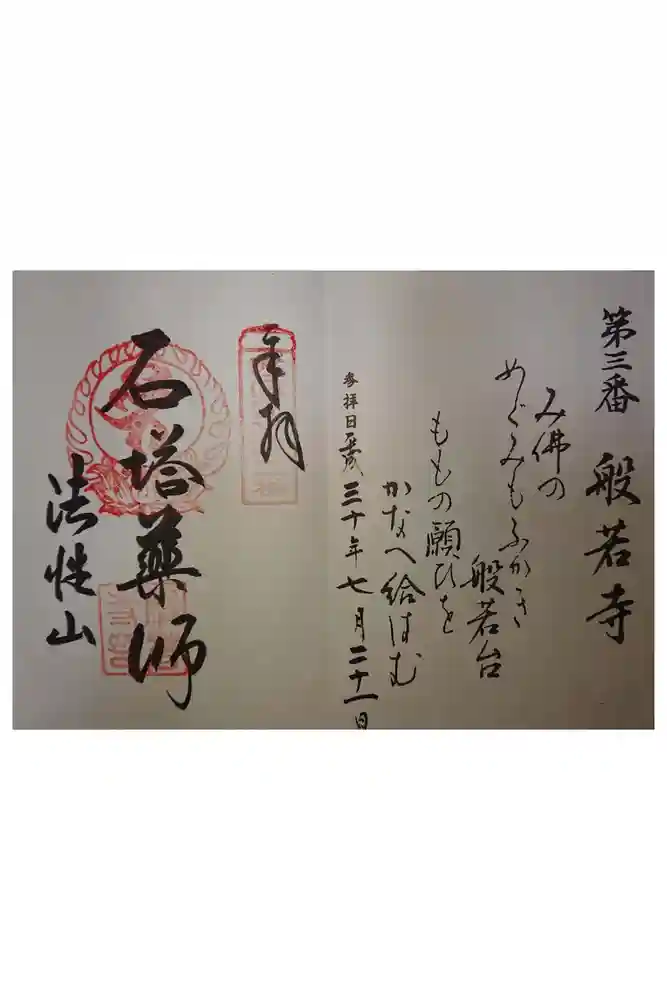 第三番 般若寺
み佛の
めぐみもふかき
般若台
ももの願ひを
かなへ給はむ
参拝日平成三十年七月二十一日
奉拝
石塔薬師
法性山